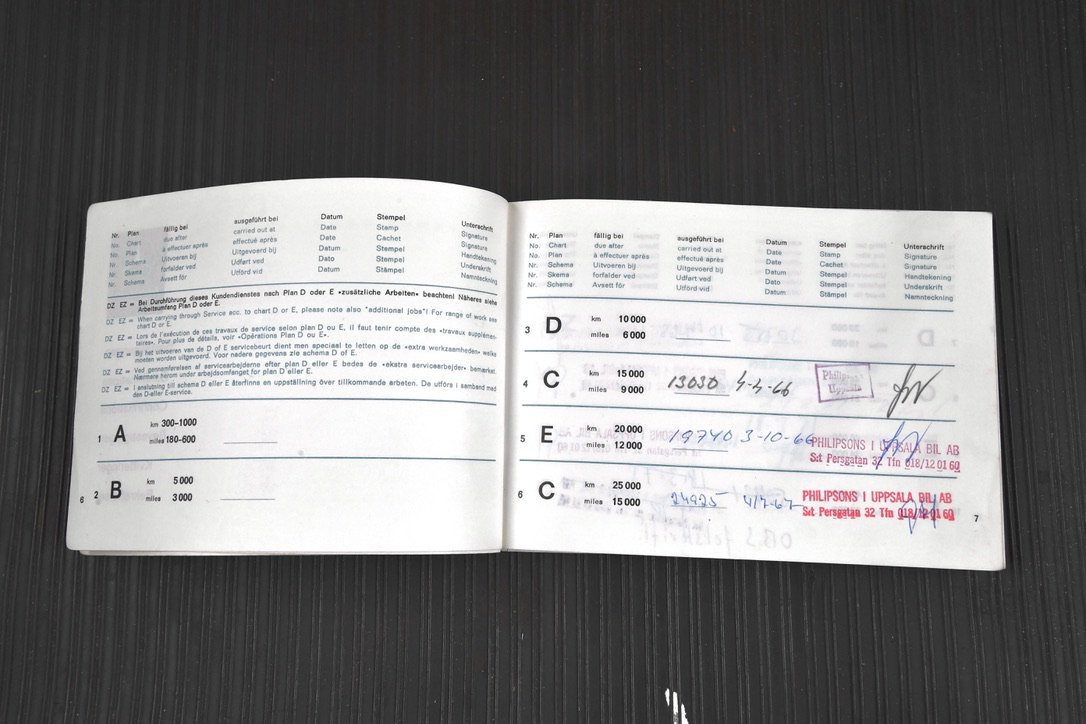 Nr. Plan fällig bei ausgeführt bei Datum Stempel Unterschrift
No. Chart due after carried out at Date Stamp Signature
No. Plan à effectuer après effectué après Date Cachet Signature
Nr. Schema Uitvoeren bij Uitgevoerd bij Datum Stempel Handtekening
Nr. Skema forfalder ved Udført ved Dato Stempel Underskrift
Nr. Schema Avsett för Utförd vid Datum Stämpel Namnteckning
DZ EZ = Bei Durchführung dieses Kundendienstes nach Plan D oder E «zusätzliche Arbeiten» beachten! Näheres siehe
Arbeitsumfang Plan D oder E.
DZ EZ = When carrying through Service acc. to chart D or E, please note also "additional jobs"! For range of work see
chart D or E.
DZ EZ = Lors de l'exécution de ces travaux de service selon plan D ou E, il faut tenir compte des «travaux supplémen-
taires». Pour plus de détails, voir «Opérations Plan D ou E».
DZ EZ = Bij het uitvoeren van de D of E servicebeurt dient men speciaal te letten op de «extra werkzaamheden» welke
moeten worden uitgevoerd. Voor nadere gegevens zie schema D of E.
DZ EZ = Ved gennemførelsen af servicearbejderne efter plan D eller E bedes de «ekstra servicearbejder» bemærket.
Nærmere herom under arbejdsomfanget for plan D eller E.
DZ EZ = I anslutning till schema D eller E återfinns en uppställning över tillkommande arbeten. De utförs i samband med
den D-eller E-service.
1 A km 300-1000
miles 180-600
2 B km 5 000
miles 3 000
6
Nr. Plan fällig bei ausgeführt bei Datum Stempel Unterschrift
No. Chart due after carried out at Date Stamp Signature
No. Plan à effectuer après effectué après Date Cachet Signature
Nr. Schema Uitvoeren bij Uitgevoerd bij Datum Stempel Handtekening
Nr. Skema forfalder ved Udført ved Dato Stempel Underskrift
Nr. Schema Avsett för Utförd vid Datum Stämpel Namnteckning
3 D km 10 000
miles 6 000
4 C km 15 000 13030 4-4-66 Philipsons
miles 9 000 Uppsala
5 E km 20 000 19740 3-10-66 PHILIPSONS I UPPSALA BIL AB
miles 12 000 S:t Persgatan 32 Tfn 018/12 01 60
6 C km 25 000 24925 4/7-67 PHILIPSONS I UPPSALA BIL AB
miles 15 000 S:t Persgatan 32 Tfn 018/12 01 60
7